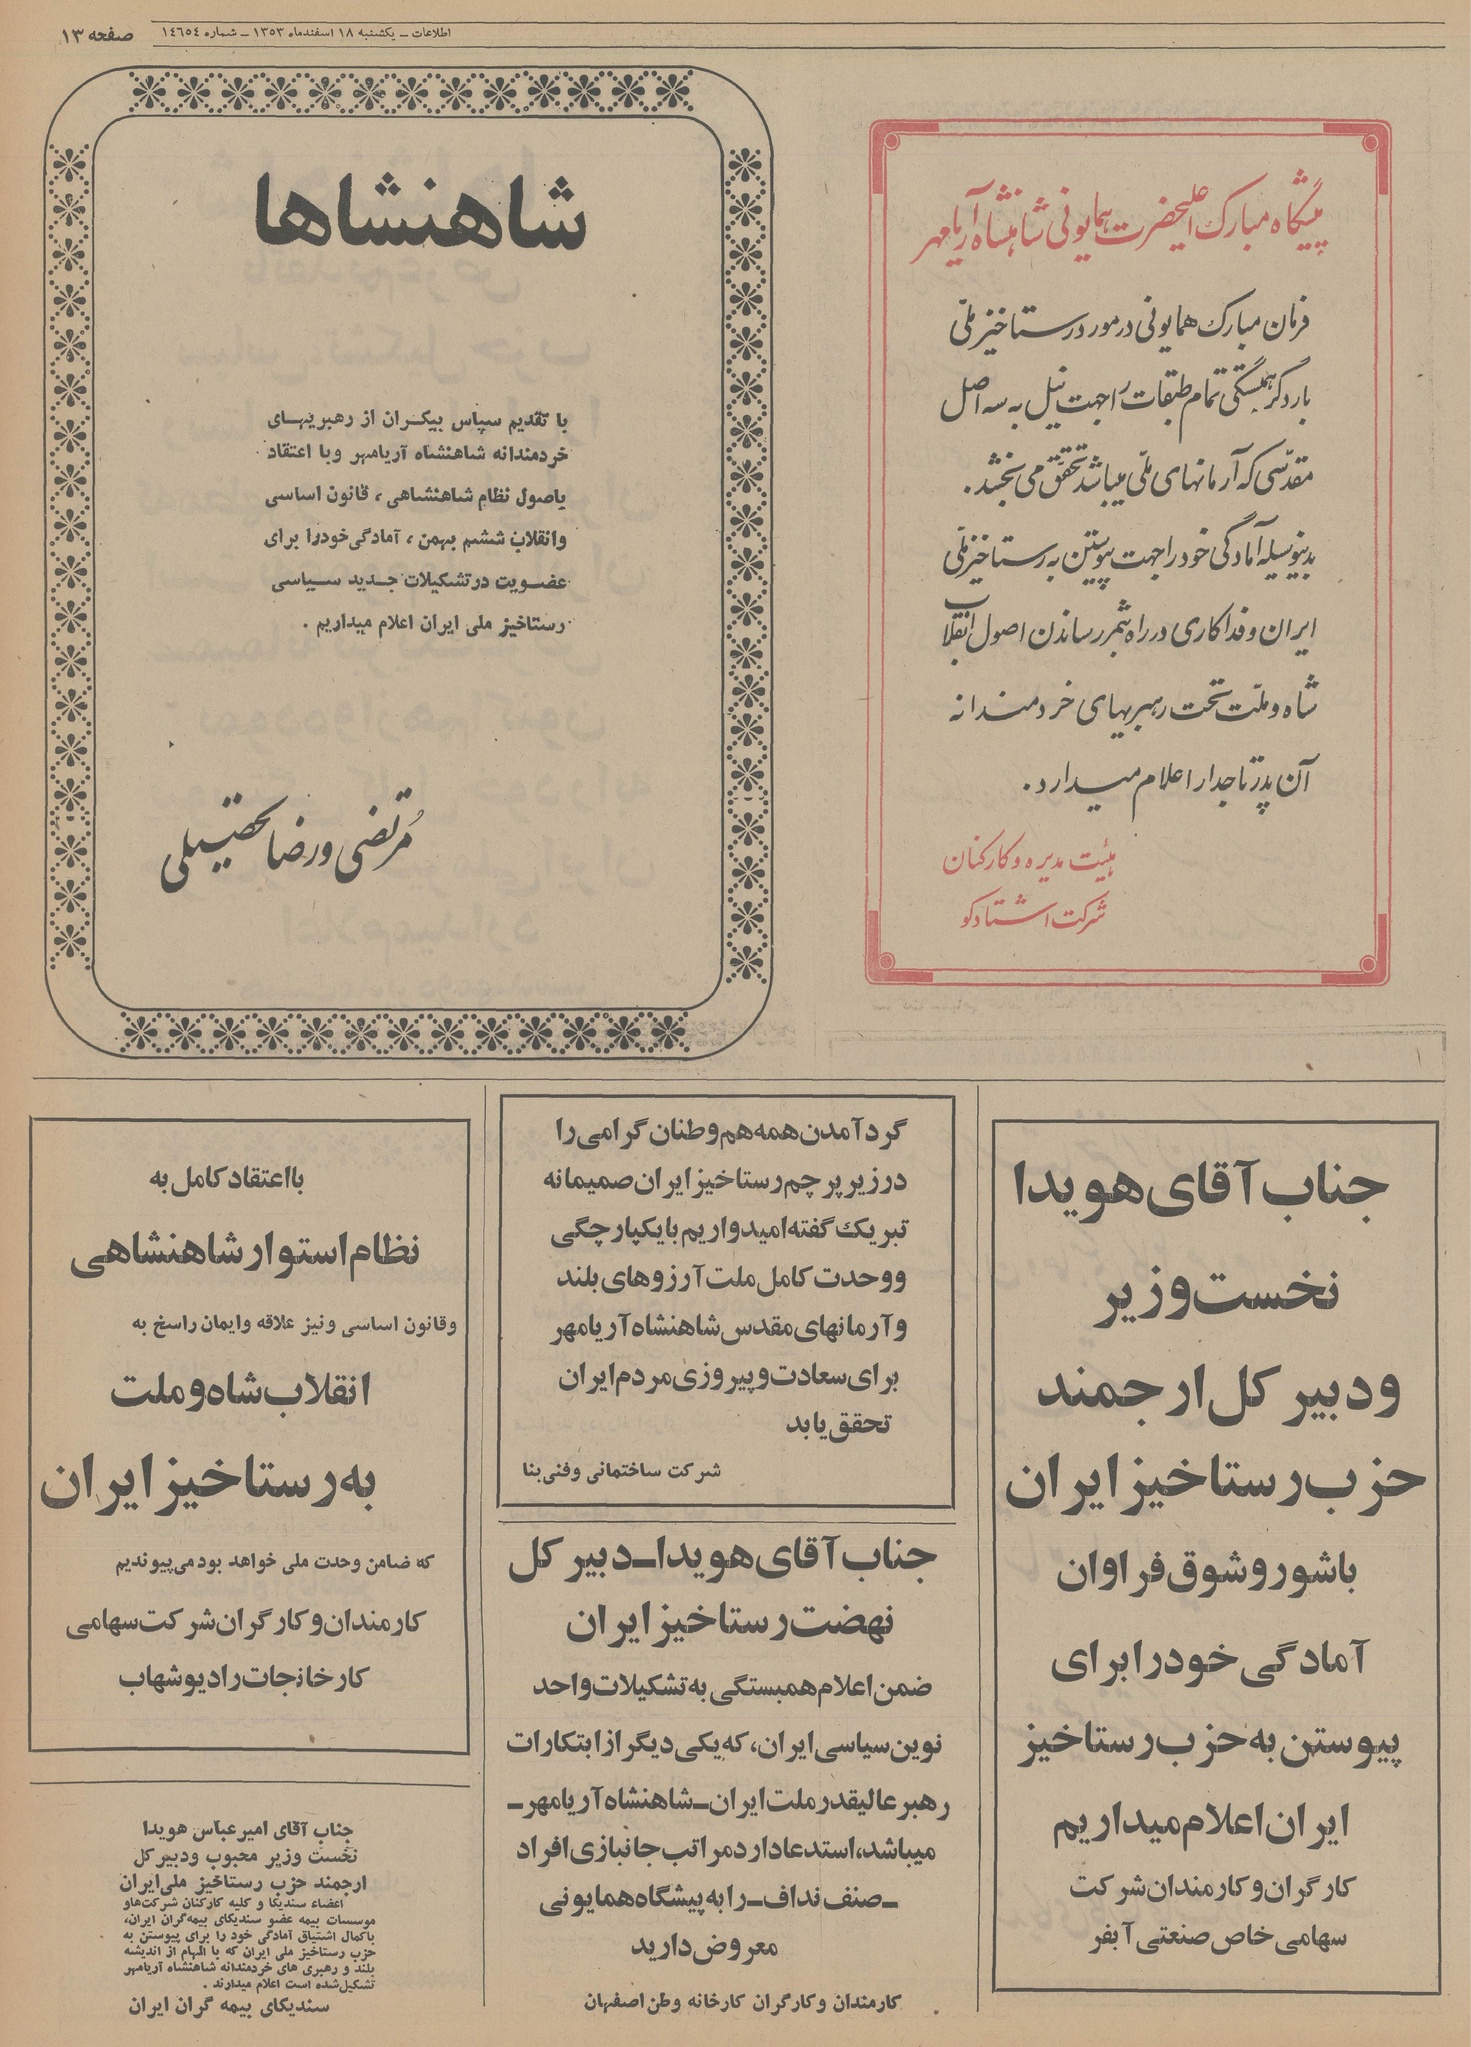 اطلاعات ـ یکشنبه ۱۸ اسفندماه ۱۳۵۳ ـ شماره ۱۴۶۵۴
صفحه ۱۳
پیشگاه مبارک اعلیحضرت همایونی شاهنشاه آریامهر
فرمان مبارک همایونی در مورد رستاخیز ملّی
بار دگر همبستگی تمام طبقات را جهت نیل به سه اصل
مقدّسی که آرمانهای ملّی میباشد تحقّق می بخشد.
بدینوسیله آمادگی خود را جهت پیوستن به رستاخیز ملّی
ایران و فداکاری در راه بثمر رساندن اصول انقلاب
شاه و ملّت تحت رهبریهای خردمندانه
آن پدر تاجدار اعلام میدارد.
هیئت مدیره و کارکنان
شرکت استادکو
شاهنشاها
با تقدیم سپاس بیکـران از رهبریهـای
خردمندانه شاهنشاه آریامهر وبا اعتقاد
باصول نظام شاهنشاهی، قانون اساسی
وانقلاب ششم بهمن، آمادگی خودرا برای
عضـویت درتشکیلات جـدید سـیاسی
رستاخیز ملی ایران اعلام میداریم .
مُرتضی ورضا
جناب آقای هویدا
نخست وزیر
ودبیر کل ارجمند
حزب رستاخیز ایران
باشور و شوق فراوان
آمادگی خودرا برای
پیوستن به حزب رستاخیز
ایران اعلام میداریم
کارگران و کارمندان شرکت
سهامی خاص صنعتی آبفر
گردآمدن همه هم وطنان گرامی را
درزیر پرچم رستاخیز ایران صمیمانه
تبریک گفته امیدواریم با یکپارچگی
و وحدت کامل ملت آرزوهای بلند
و آرمانهای مقدس شاهنشاه آریامهر
برای سعادت و پیروزی مردم ایران
تحقق یابد
شرکت ساختمانی وفنی بنا
جناب آقای هویدا ـ دبیر کل
نهضت رستاخیز ایران
ضمن اعلام همبستگی به تشکیلات واحد
نوین سیاسی ایران، که یکی دیگر از ابتکارات
رهبر عالیقدر ملت ایران ـ شاهنشاه آریامهر ـ
میباشد، استدعا دارد مراتب جانبازی افراد
ـ صنف نداف ـ را به پیشگاه همایونی
معروض دارید
کارمندان وکارگران کارخانه وطن اصفهان
با اعتقاد کامل به
نظام استوار شاهنشاهی
وقانون اساسی ونیز علاقه وایمان راسخ به
انقلاب شاه و ملت
به رستاخیز ایران
که ضامن وحدت ملی خواهد بود می پیوندیم
کارمندان و کارگران شرکت سهامی
کارخانجات رادیو شهاب
جناب آقای امیرعباس هویدا
نخست وزیر محبوب ودبیرکل
ارجمند حزب رستاخیز ملی ایران
اعضاء سندیکا و کلیه کارکنان شرکت هاو
موسسات بیمه عضو سندیکای بیمه گران ایران،
باکمال اشتیاق آمادگی خود را برای پیوستن به
حزب رستاخیز ملی ایران که با الهام از اندیشه
بلند و رهبری های خردمندانه شاهنشاه آریامهر
تشکیل شده است اعلام میدارند .
سندیکای بیمه گران ایران